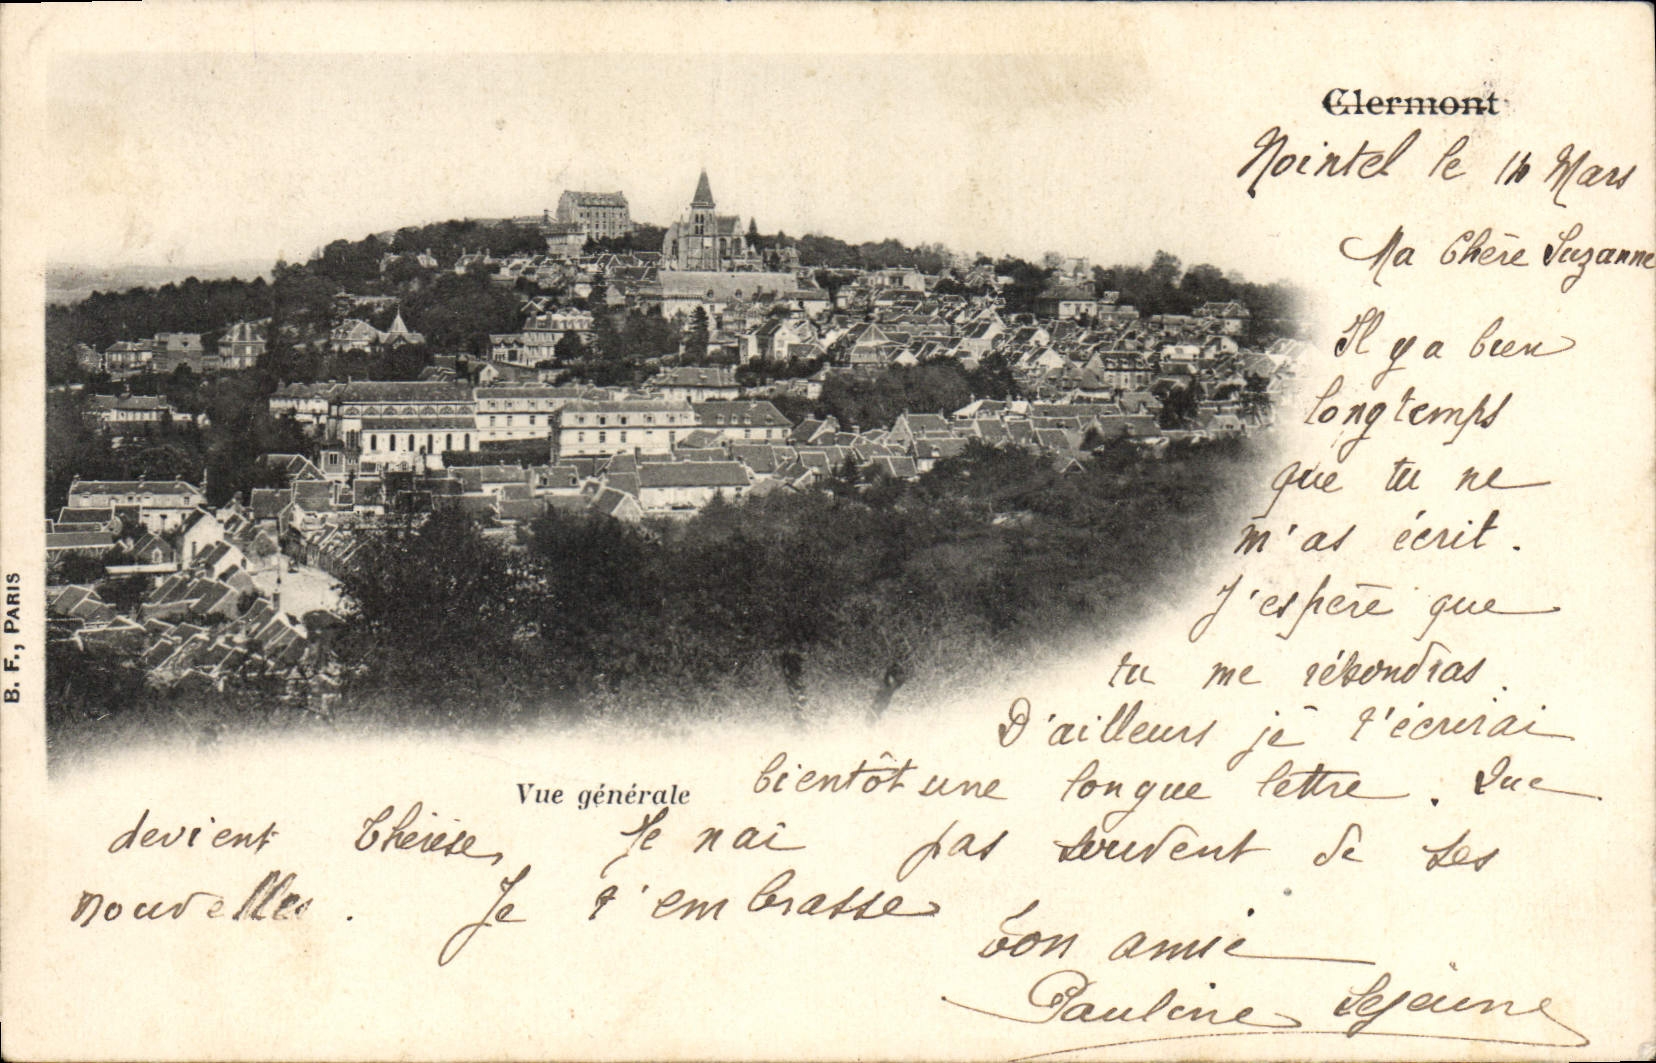 Clermont
Nointel le 14 Mars
Ma Chère Suzanne
Il y a bien
longtemps
que tu ne
m'as écrit.
J'espère que
tu me répondras.
D'ailleurs je t'écrirai
Vue générale
bientôt une longue lettre. Que
devient Thérèse, Je nai pas souvent de ses
nouvelles. Je t'embrasse
Ton amie
Pauline Lejeune
B. F., PARIS